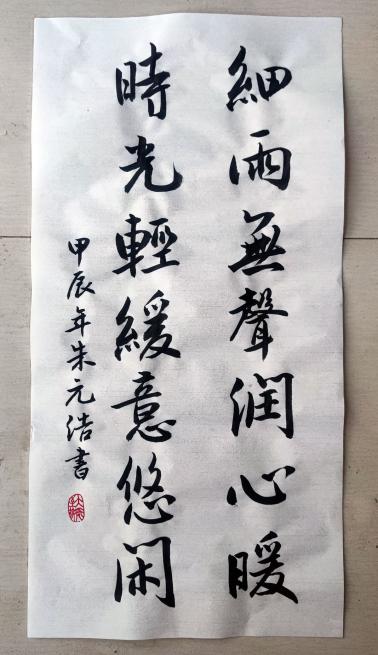 細雨無聲润心暖
時光輕緩意悠闲
甲辰年朱元浩書